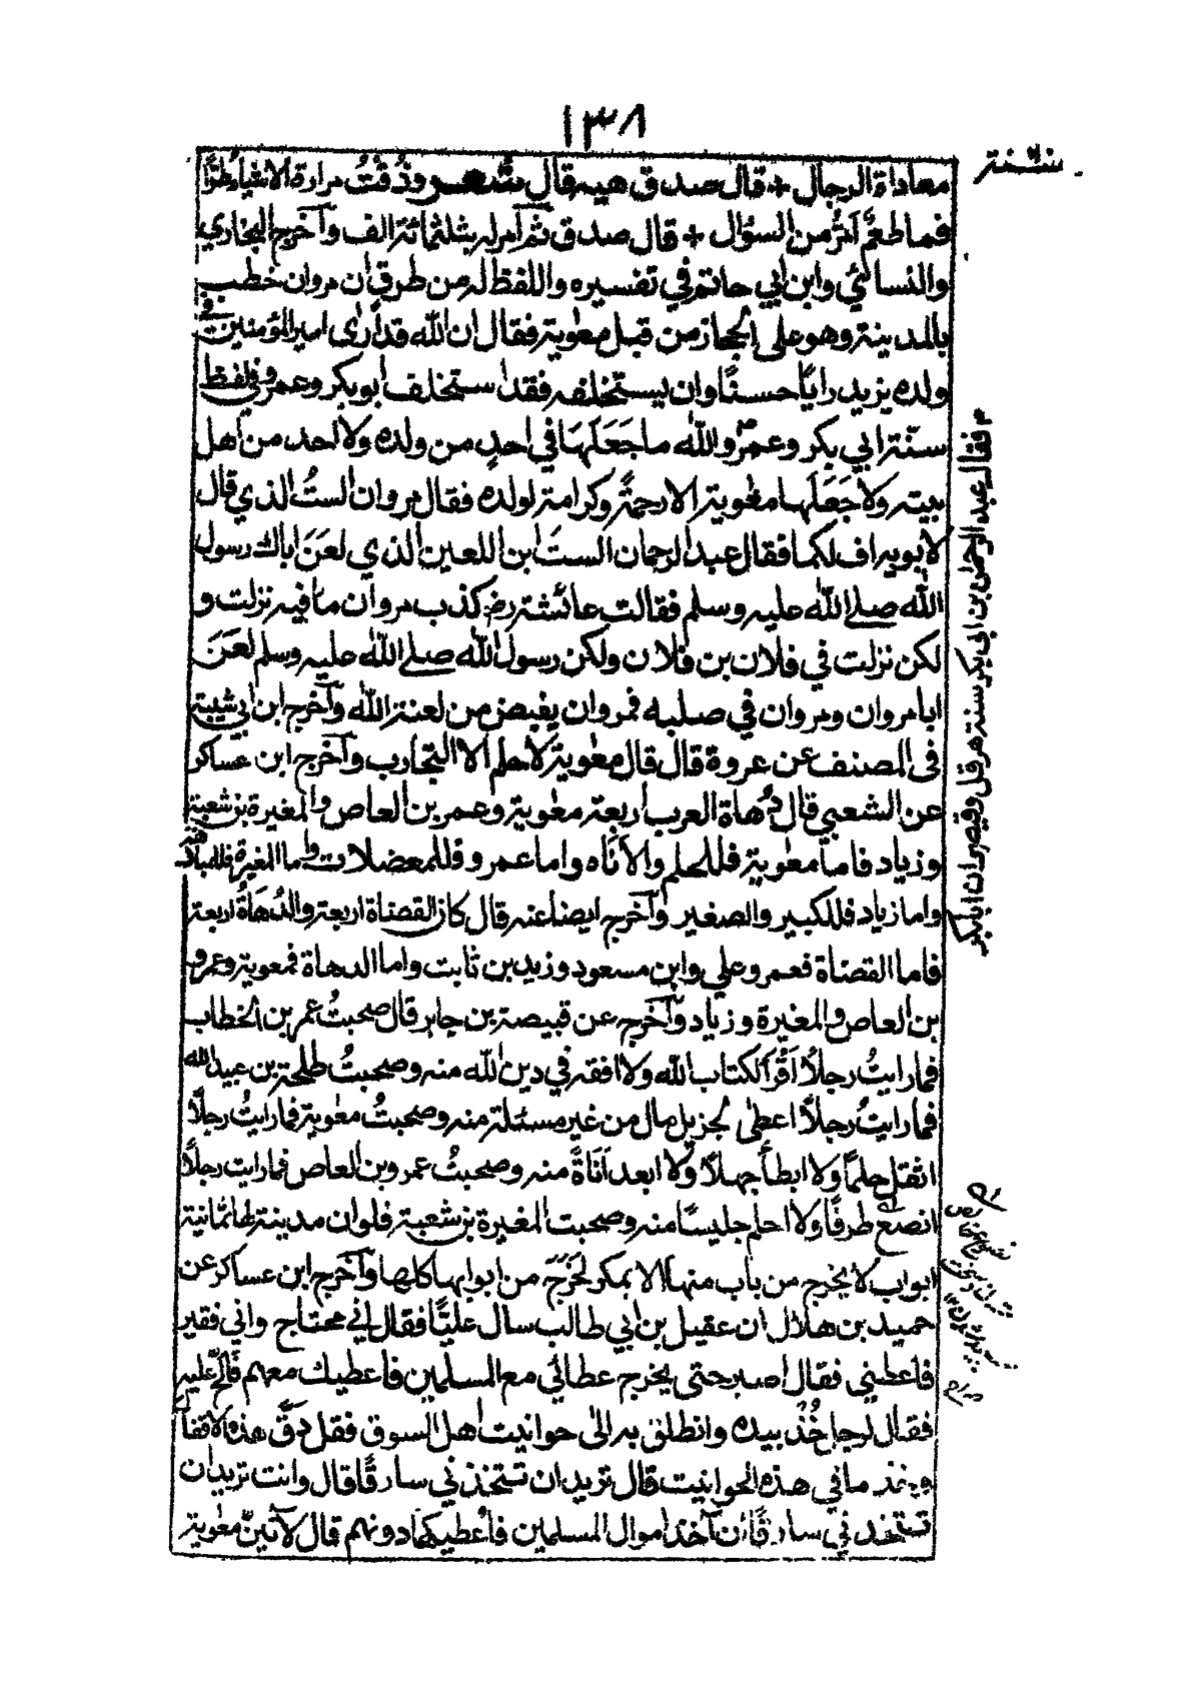 ١٣٨
سنته
معاداة الرجال + قال صدق هيه قال شعر وذقت مرارة الاشياء طرًّا
فما طعم اَمَرُّ من السؤال + قال صدق ثم اَمر له بثلثمائة الف وآخرج البخاري
والنسائي وابن ابي حاتم في تفسيره واللفظ له من طرق ان مروان خطب
بالمدينة وهو على الحجاز من قبل معٰوية فقال ان الله قد اَرٰى امير المؤمنين في
ولده يزيد رايًا حسنًا وان يستخلفه فقد استخلف ابو بكر وعمر وفي لفظ
سنّة ابي بكر وعمر والله ما جَعَلَهَا في احدٍ من ولده ولا احد من اهل
بيته ولا جَعَلَها معٰوية الا رحمةً وكرامة لولده فقال مروان الستُ الذي قال
لابويه اف لكما فقال عبد الرحمان الستَ ابن اللعين الذي لعَنَ اباك رسول
الله صلے الله عليه وسلم فقالت عائشة رض كذب مروان ما فيه نزلت و
لكن نزلت في فلان بن فلان ولكن رسول الله صلے الله عليه وسلم لعَنَ
ابا مروان ومروان في صلبه فمروان يفيض من لعنة الله وآخرج ابن ابي شيبة
في المصنف عن عروة قال قال معٰوية لا حلم الا التجارب وآخرج ابن عساكر
عن الشعبي قال دُهاة العرب اربعة معٰوية وعمر بن العاص والمغيرة بن شعبة
وزياد فاما معٰوية فللحلم والاَنَاه واما عمرو فللمعضلات واما المغيرة فللمبادهة
واما زياد فللكبير والصغير وآخرج ايضا عنه قال كان القضاة اربعة والدُهَاةُ اربعة
فاما القضاة فعمر وعلي وابن مسعود وزيد بن ثابت واما الدهاة فمعوية وعمرو
بن العاص والمغيرة وزياد وآخرج عن قبيصة بن جابر قال صحبتُ عمر بن الخطاب
فما رايتُ رجلاً اَقْرأ لكتاب الله ولا افقه في دين الله منه وصحبتُ طلحة بن عبيد الله
فما رايتُ رجلاً اعطٰى لجزيل مال من غير مسئلة منه وصحبتُ معٰوية فما رايتُ رجلاً
اثقل حلمًا ولا ابطأ جهلاً ولا ابعد اَنَاةً منه وصحبتُ عمر وبن العاص فما رايت رجلاً
انصع طرفًا ولا احلم جليسًا منه وصحبت المغيرة بن شعبة فلو ان مدينة لها ثمانية
ابواب لا يخرج من باب منها الا بمكر لخَرَجَ من ابوابها كلها وآخرج ابن عساكر عن
حميد بن هلال ان عقيل بن ابي طالب سال عليًّا فقال اني محتاج واني فقير
فاعطني فقال اصبر حتى يخرج عطائي مع المسلمين فاعطيك معهم فَالَحَّ عليه
فقال لرجل خُذْ بيده وانطلق به الىٰ حوانيت اهل السوق فقل دق هذه الاقفال
وخذ ما في هذه الحوانيت قال تريد ان تتخذني سارقًا قال وانت تريد ان
تتخذني سارقًا ان آخذ اموال المسلمين فاُعطيكها دونهم قال لآتينَّ معٰوية
فقال عبد الرحمٰن بن ابي بكر سنة هرقل وقيصر ان ابا بكر